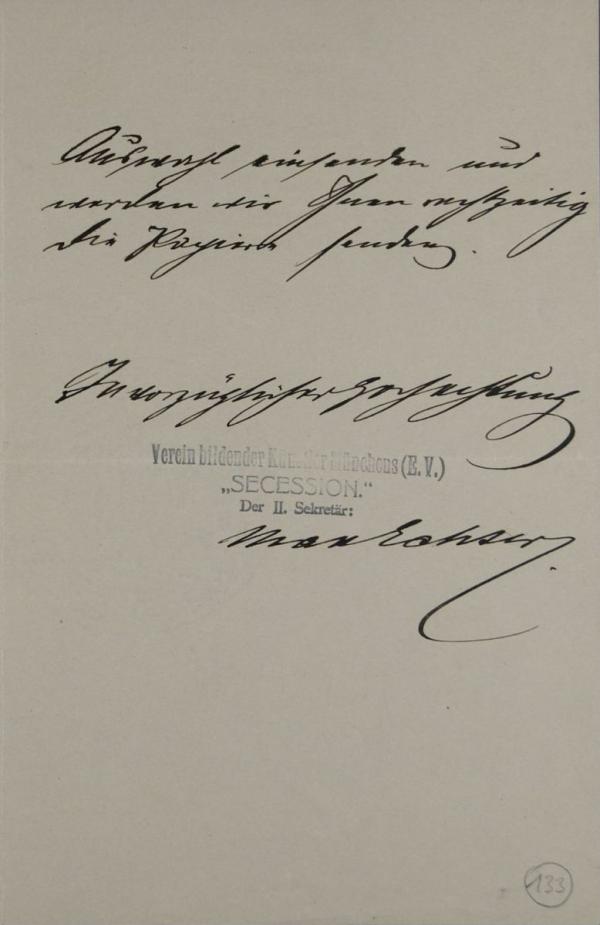 Auswahl einsenden und
werden wir Ihnen rechtzeitig
die Papiere senden.
In vorzüglicher Hochachtung
Verein bildender Künstler Münchens (E.V.)
„SECESSION."
Der II. Sekretär:
Max Echter
133